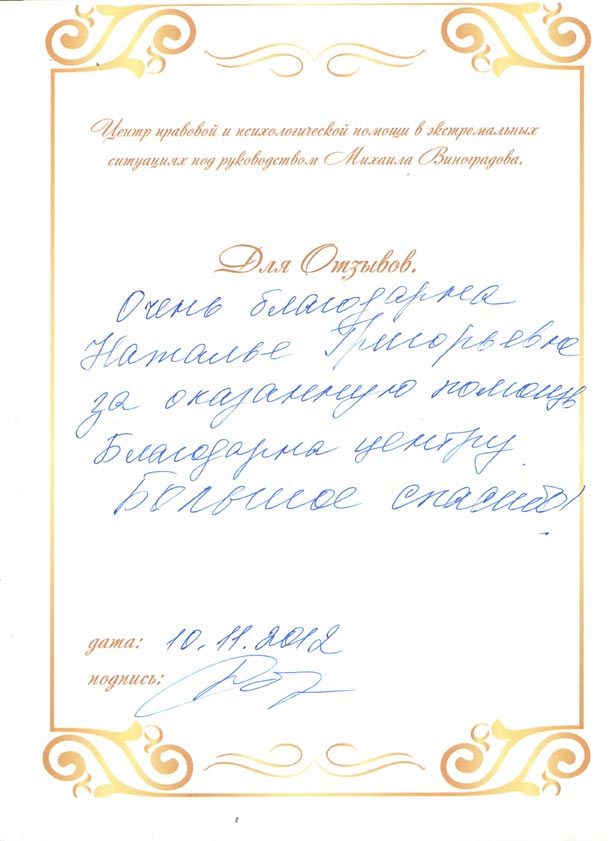 Центр правовой и психологической помощи в экстремальных
ситуациях под руководством Михаила Виноградова.
Для Отзывов.
Очень благодарна
Наталье Григорьевне
за оказанную помощь
Благодарна центру
Большое спасибо!
дата: 10.11.2012
подпись: